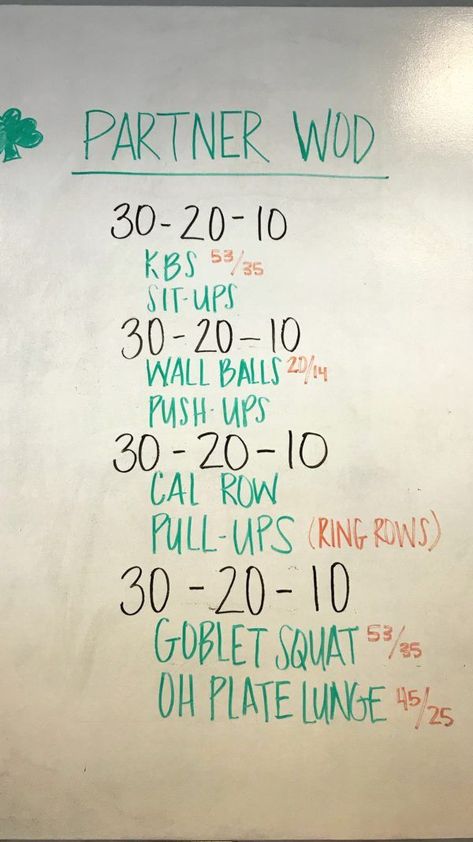 PARTNER WOD
30-20-10
KBS 53/35
SIT-UPS
30-20-10
WALL BALLS 20/14
PUSH-UPS
30-20-10
CAL ROW
PULL-UPS (RING ROWS)
30-20-10
GOBLET SQUAT 53/35
OH PLATE LUNGE 45/25